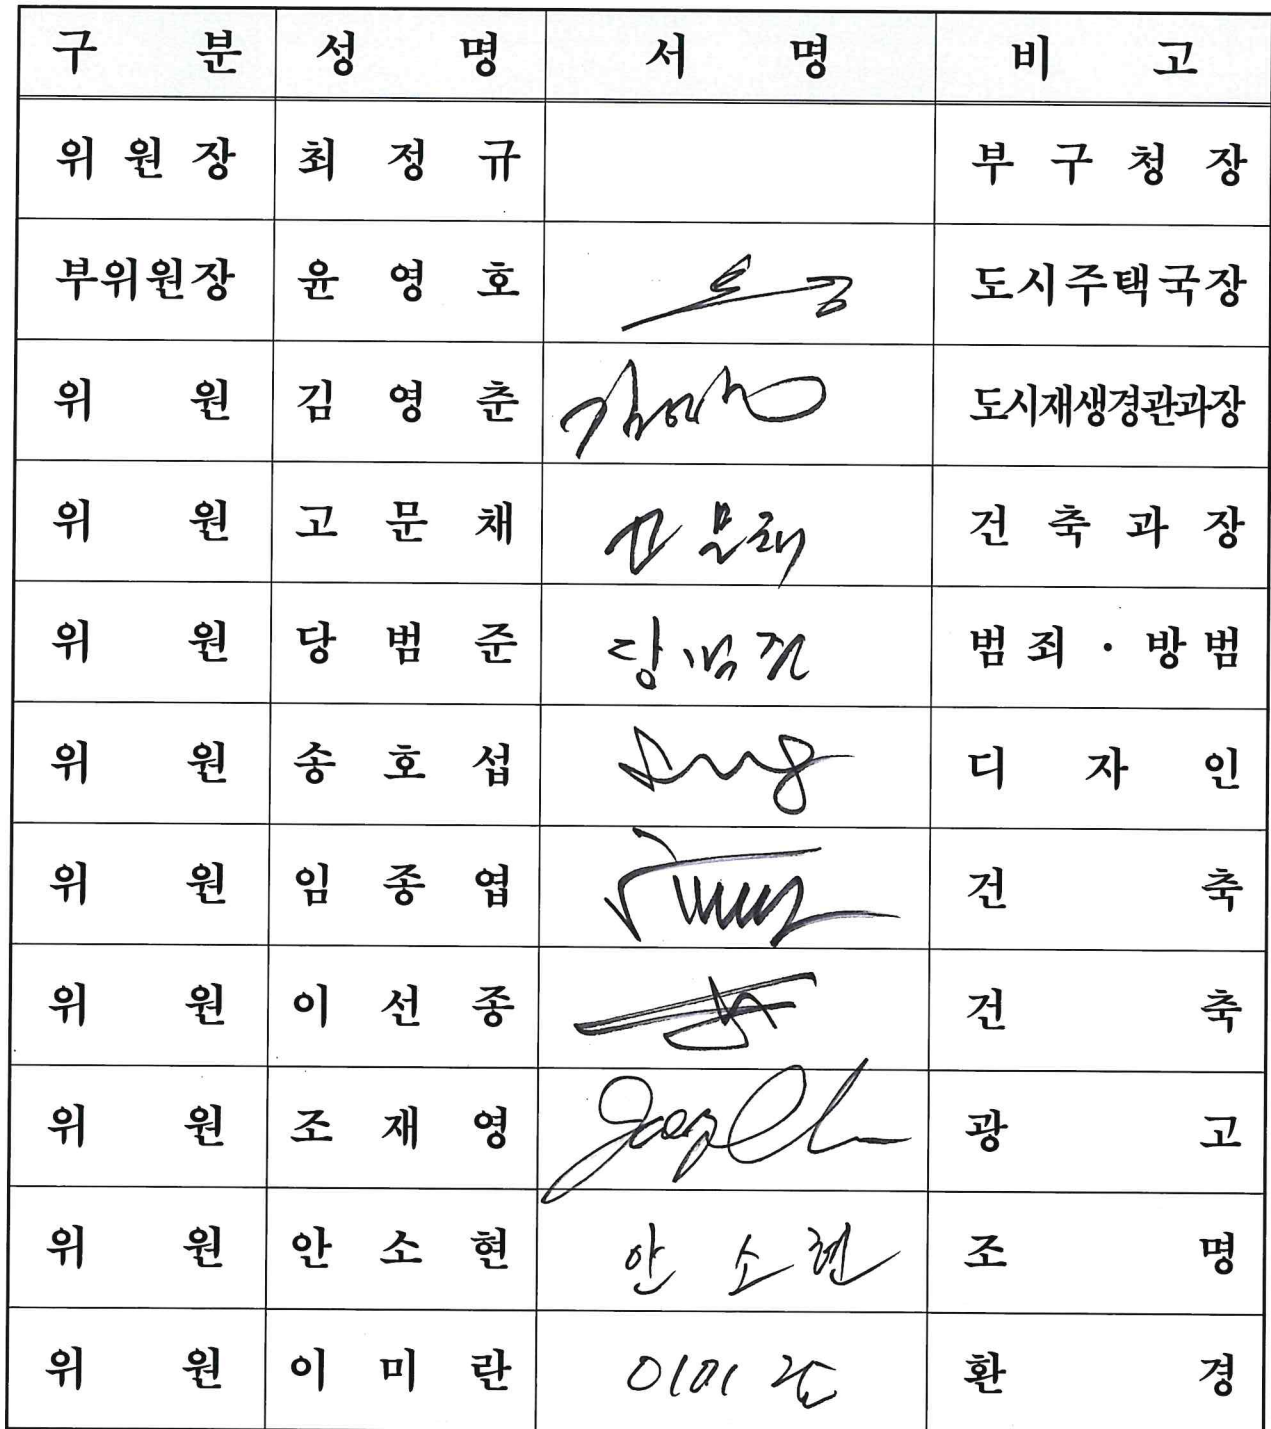 구 분 성 명 서 명 비 고
위 원 장 최 정 규 부 구 청 장
부위원장 윤 영 호 도시주택국장
위 원 김 영 춘 도시재생경관과장
위 원 고 문 채 고 문채 건 축 과 장
위 원 당 범 준 당범준 범죄 · 방범
위 원 송 호 섭 디 자 인
위 원 임 종 엽 건 축
위 원 이 선 종 건 축
위 원 조 재 영 광 고
위 원 안 소 현 안 소 현 조 명
위 원 이 미 란 이미란 환 경